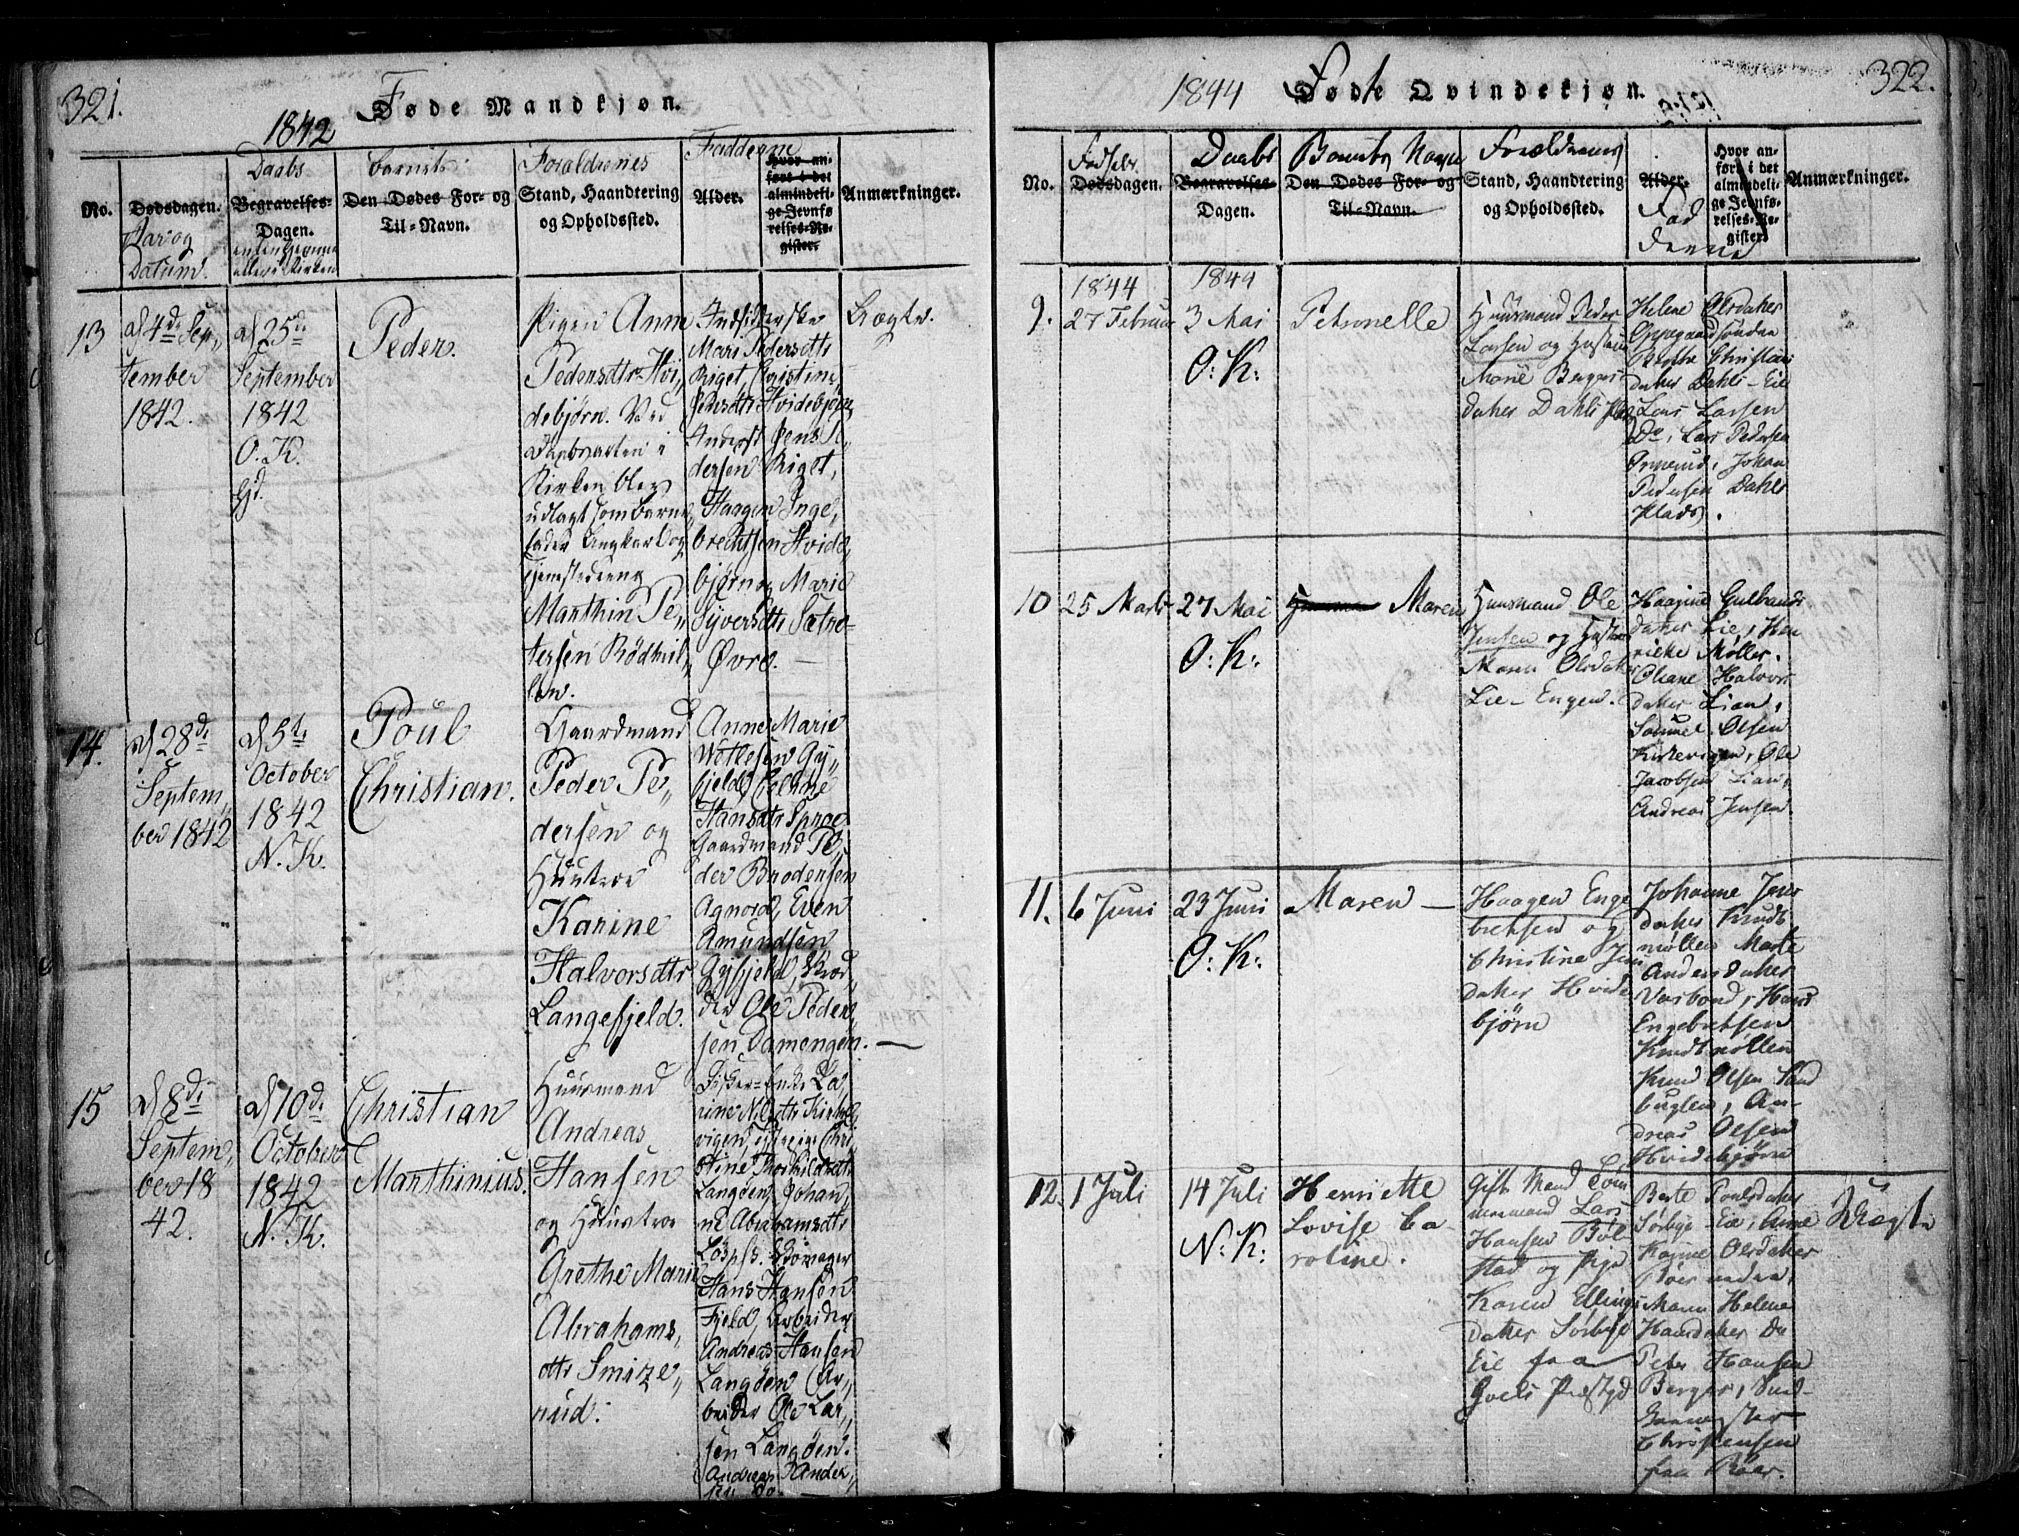 321.
Føde Mandkjøn.
1842
No.
Dødsdagen.
Aar og
Datum.
Daabs
Begravelses-
Dagen.
Barnets
Den Dødes For- og
Til-Navn.
Forældrenes
Stand, Haandtering
og Opholdssted.
Faddere
Alder.
Hvor an-
ført i det
almindeli-
ge Jevnfø-
relses-Re-
gister.
Anmærkninger.
13
d. 4de Sep„
tember
1842.
d. 25de
September
1842
O. K.
Peder.
Pigen Anne
Pedersdtr Hvi„
debjørn. Ved
Daabsacten i
Kirken blev
udlagt som Barne„
fader Ungkarl og
Marthin Pe„
tersen Rødmil„
len.
Mari Pedersdtr
Riget, Christine
Pedersdtr Hvidebjørn
Anders Jens Pe„
dersen Riget,
Haagen Inge„
brechtsen Hvide„
bjørn og Marie
Syversdtr Sætre-
Øvre. —
Uægte.
14.
d. 28de
Septem„
ber 1842
d. 5te
October
1842
N. K.
Poul
Christian.
Gaardmand
Peder Pe„
dersen og
Hustroe
Karine
Halvorsdtr
Langefjeld.
Anne Marie
Wetlesen Gy„
fjeld, Celine
Hansdtr Sproe
Gaardmand Pe„
der Brodersen
Agnord, Even
Amundsen
Gyfjeld, Brod
der Ole Peder„
sen Damengen. —
15
d. 8de
Septem„
ber 18
42.
d. 10de
October
1842
N. K.
Christian
Marthinius.
Huusmand
Andreas
Hansen
og Hustroe
Grethe Marie
Abrahams„
dtr Smize„
rud.
Fisker-Enke La„
rine Nilsdtr Kirke„
vigen,
stine Thorkildsdtr
Langøen, Johan„
ne Abrahamsdtr
Svoger
Hans Hansen
Fjeld, Arbeider
Andreas Hansen
Langøen, Ar„
beider Ole Lar„
sen Langøen.
Andreas Ander„
sen do. —
322.
1844
Føde Qvindekjøn.
No.
Fødsels
Dødsdagen.
Daabs
Begravelses-
Dagen.
Barnets Navn
Den Dødes For- og
Til-Navn.
Forældrenes
Stand, Haandtering
og Opholdssted.
Alder.
Fad
derne
Hvor an-
ført i det
almindeli-
ge Jevnfø-
relses-Re-
gister.
Anmærkninger.
9.
1844
27 Februar
1844
3 Mai
O: K:
Petronelle
Huusmand Peder
Larsen og Hustru
Marie Bergers
datter Dahls Plads
Helene Olsdatter
Oppegaard søndre
Berthe Christians
datter Dahls-Eie
Lars Larsen
Do, Lars Pedersen
Ormerud, Johan
Pedersen Dahls
Plads.
10
25 Marts
27 Mai
O: K:
Maren
Huusmand Ole
Jensen og Hustru
Maren Olsdatter
Lie-Engen.
Haagine Gulbrands
datter Lie, Hen
rieke Møller.
Oliane Halvors
datter Lian,
Samuel Olsen
Kirkevigen, Ole
Jacobsen Lian,
Andreas Jensen.
11.
6 Juni
23 Juni
O: K:
Maren —
Haagen Enge
bretsen og
Christine Jens
datter Hvide
bjørn
Johanne Jens
datter Knuds
møllen Marte
Andersdatter
Varbond, Hans
Engebretsen
Knudsmøllen
Knud Olsen Sand
buglen, An-
dreas Olsen
Hvidebjørn
12.
1 Juli
14 Juli
N: K:
Henriette
Lovise Ca-
roline.
Gift Mand Tøm
mermand Lars
Hansen Bøl
stad og Pige
Karen Ellings
datter Sørbye
Eie fra
Berte Poulsdatter
Sørbye-Eie, Anne
Karine Olsdatter
Maren Helene
Hansdatter Do
Peter Hansen
Berger,
Christensen
fra Roer.
Uægte